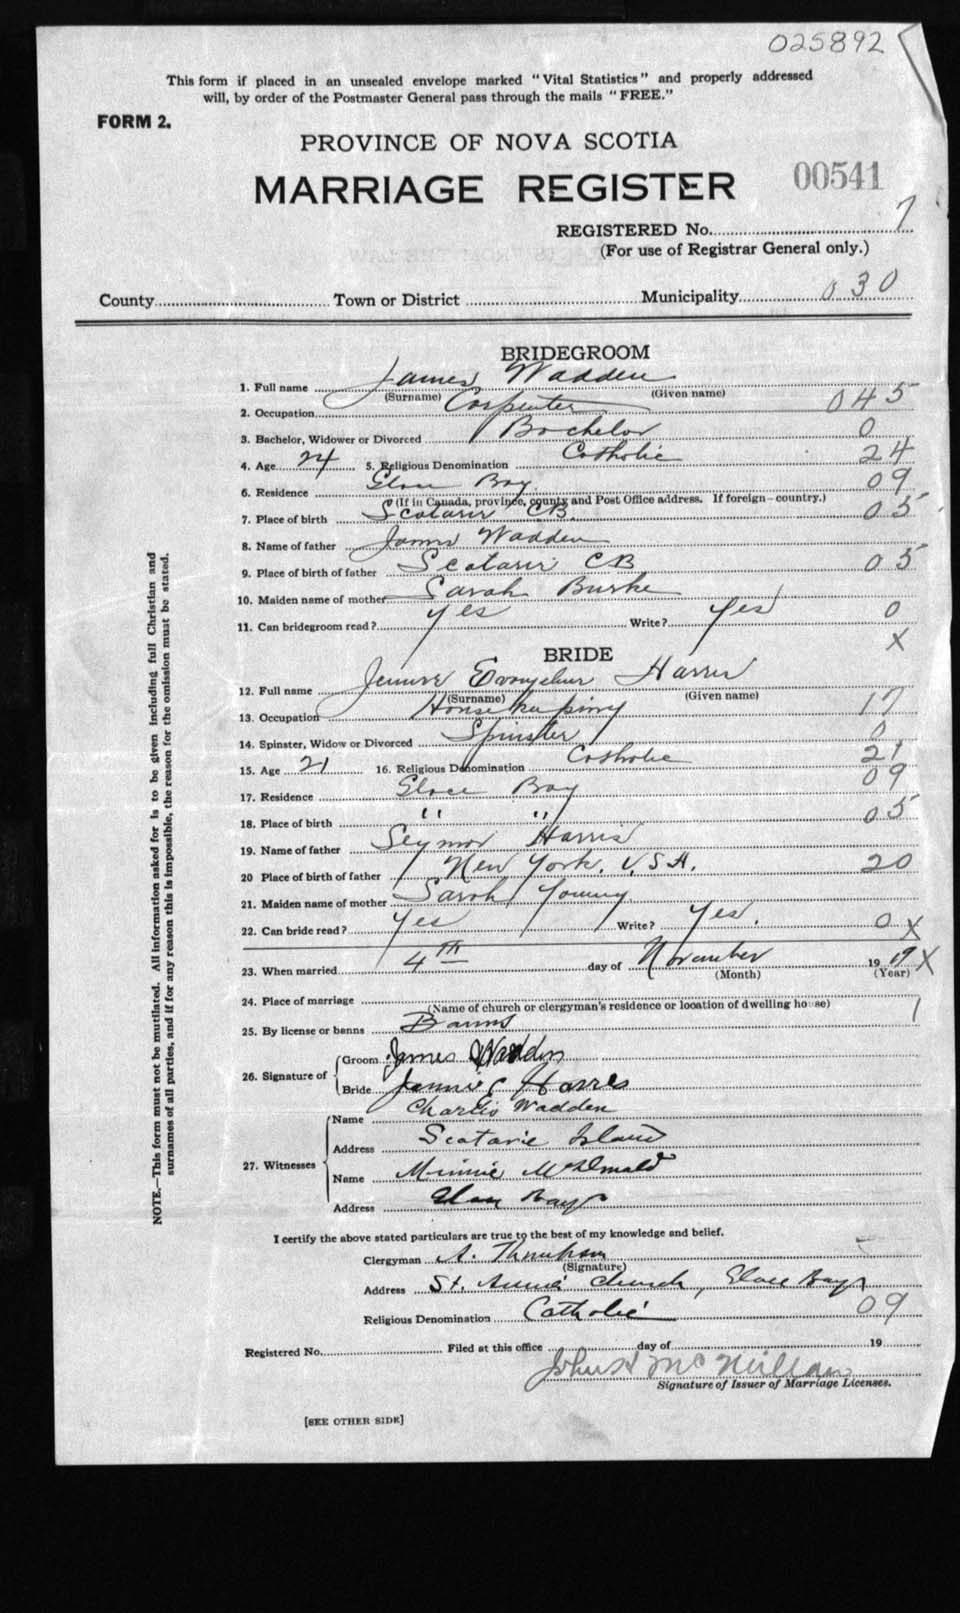 025892
This form if placed in an unsealed envelope marked "Vital Statistics" and properly addressed
will, by order of the Postmaster General pass through the mails "FREE."
FORM 2.
PROVINCE OF NOVA SCOTIA
MARRIAGE REGISTER 00541
REGISTERED No. 7
(For use of Registrar General only.)
County Town or District Municipality 030
BRIDEGROOM
1. Full name James Wadden
(Surname) (Given name)
2. Occupation Carpenter 045
3. Bachelor, Widower or Divorced Bachelor 0
4. Age 24 5. Religious Denomination Catholic 24
6. Residence Glace Bay 09
(If in Canada, province, county and Post Office address. If foreign—country.)
7. Place of birth Scatarie CB. 05
8. Name of father James Wadden
9. Place of birth of father Scatarie CB 05
10. Maiden name of mother Sarah Burke
11. Can bridegroom read? Yes Write? Yes 0
X
BRIDE
12. Full name Jennie Evangeline Harris
(Surname) (Given name)
13. Occupation Housekeeping 17
14. Spinster, Widow or Divorced Spinster 0
15. Age 21 16. Religious Denomination Catholic 21
17. Residence Glace Bay 09
18. Place of birth " " 05
19. Name of father Seymor Harris
20 Place of birth of father New York, U.S.A. 20
21. Maiden name of mother Sarah Young
22. Can bride read? Yes Write? Yes. 0 X
23. When married 4TH day of November 19 19 X
(Month) (Year)
24. Place of marriage
(Name of church or clergyman's residence or location of dwelling house)
25. By license or banns Banns 1
26. Signature of Groom James Wadden
Bride Jennie E Harris
27. Witnesses Name Charles Wadden
Address Scatarie Island
Name Minnie McDonald
Address Glace Bay
I certify the above stated particulars are true to the best of my knowledge and belief.
Clergyman A. Thompson
(Signature)
Address St. Anne's Church, Glace Bay
Religious Denomination Catholic 09
Registered No. Filed at this office day of 19
John A McMillan
Signature of Issuer of Marriage Licenses.
[SEE OTHER SIDE]
NOTE.—This form must not be mutilated. All information asked for is to be given including full Christian and
surnames of all parties, and if for any reason this is impossible, the reason for the omission must be stated.